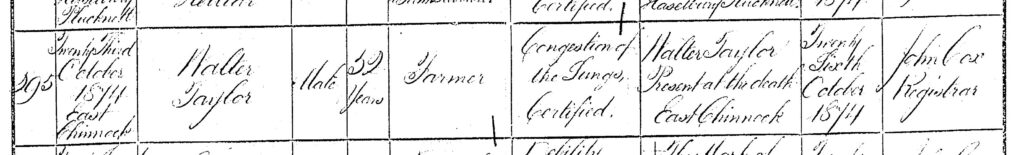 Plucknett
Certified.
Haselbury Plucknett.
1874
395
Twenty Third
October
1874
East
Chinnock
Walter
Taylor
Male
52
Years
Farmer
Congestion of
the Lungs,
Certified.
Walter Taylor
Present at the death
East Chinnock
Twenty
Sixth
October
1874
John Cox
Registrar